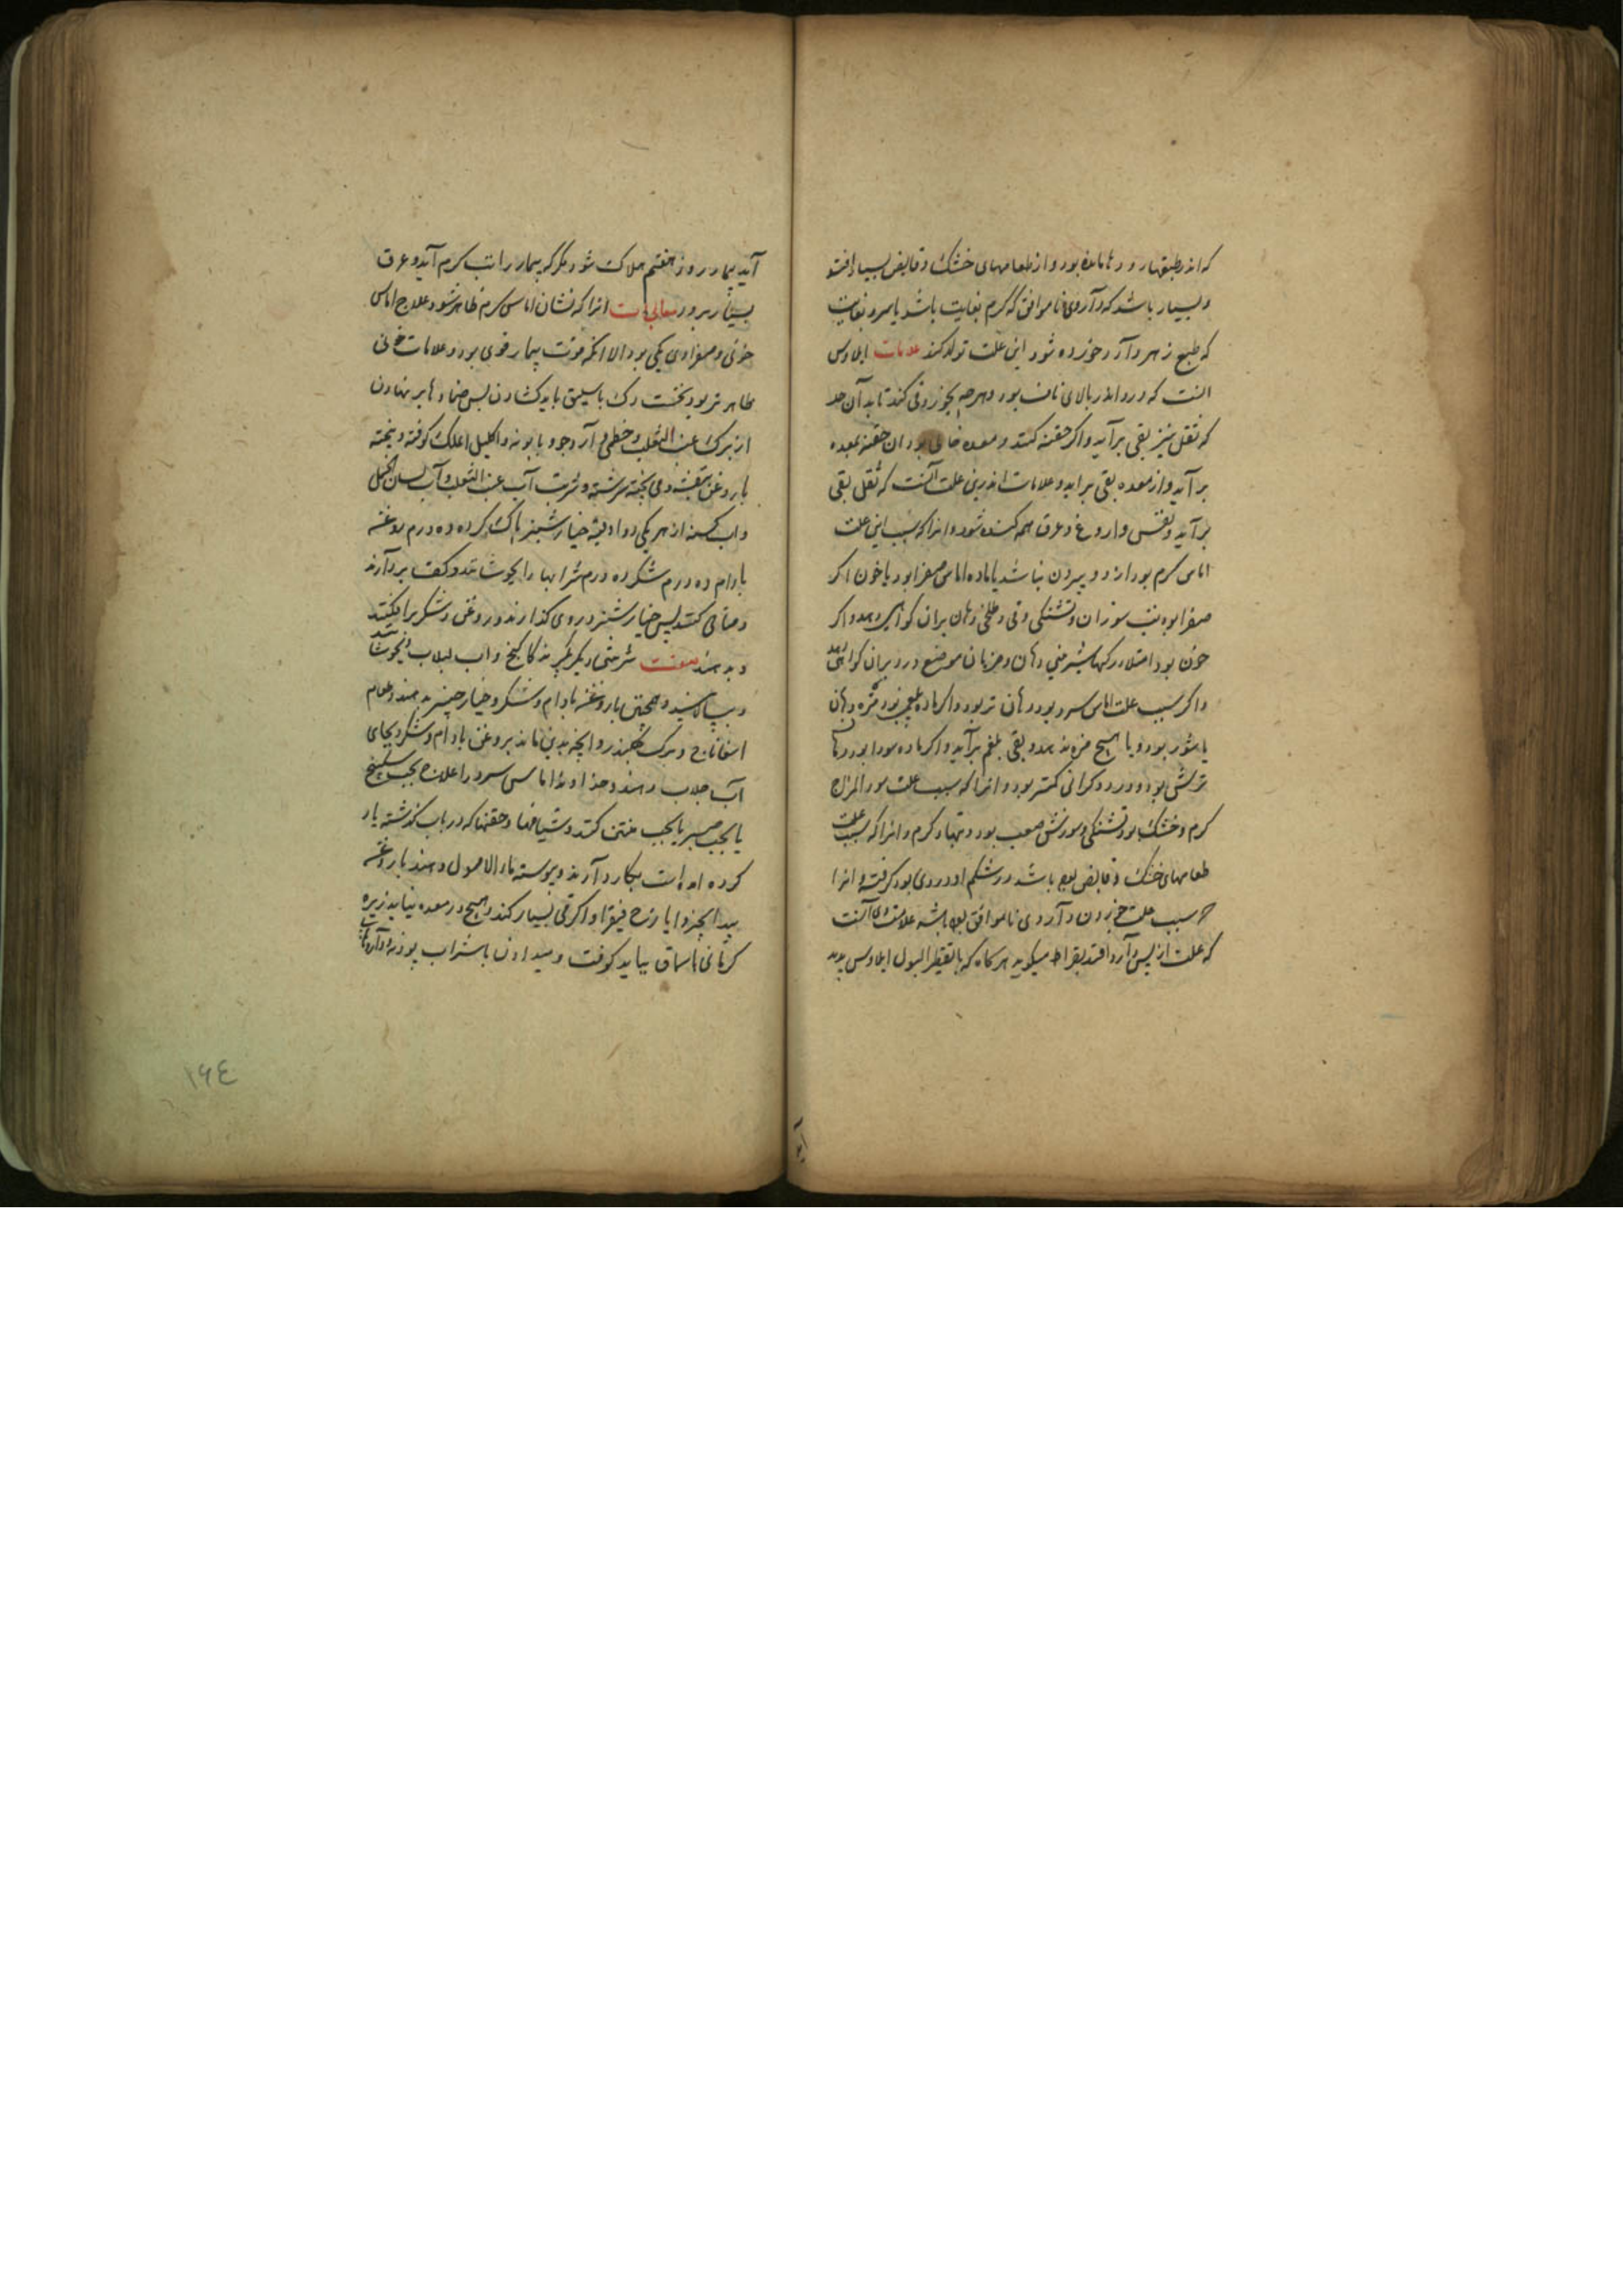 که اندر طبقهاء رودها مانده بود و از طعامهای خشک و قابض بسیار افتد
و بسیار باشد که داروی ناموافق که گرم بغایت باشد یا سرد بغایت
که طبع زهر دارد خورده شود این علت تولد کند علامات ایلاوس
آنست که درد اندر بالای ناف بود و هرچه بخورد قی کند تا بدان حد
که ثفل نیز بقی برآید و اگر حقنه کنند و معده خالی بود آن حقنه بمعده
برآید و از معده بقی براید و علامات اندرین علت آنست که ثفل بقی
برآید و نفس و اروغ و عرق همه کنده شود و انرا که سبب این علت
اماس گرم بود از دو بیرون نباشد یا ماده اماس صفرا بود یا خون اگر
صفرا بود تب سوزان و تشنگی و قی و تلخی دهان بران گواهی دهد و اگر
خون بود امتلاء رگها و شیرینی دهان و ضربان موضع درد بران گواهی دهد
و اگر سبب علت اماس سرد بود دهان تر بود و اگر ماده بلغمی بود مزه دهان
یا شور بود و یا هیچ مزه ندهد و بقی بلغم برآید و اگر ماده سودا بود دهان
ترش بود و درد و گرانی کمتر بود و انرا که سبب علت سوء المزاج
گرم و خشک بود تشنگی و سوزش صعب بود و تبهاء گرم و انرا که سبب علت
طعامهای خشک و قابض بود باشد در شکم او دردی بود گرفته و انرا
که سبب علت خوردن داروی ناموافق بوده باشد علامت وی آنست
که علت از پس دارو افتد بقراط میگوید هرگاه که با تقطیر البول ایلاوس پدید
آید بیمار روز هفتم هلاک شود مگر که بیمار را تب گرم آید و عرق
بسیار برود معالجات انرا که نشان اماس گرم ظاهر شود علاج اماس
خونی و صفراوی یکی بود الا انکه قوت بیمار قوی بود و علامات خونی
ظاهرتر بود نخست رگ باسلیق باید گشادن پس ضمادها برنهادن
از برگ عنب الثعلب و خطمی و آرد جو و بابونه و اکلیل الملک کوفته و بیخته
با روغن بنفشه و می پخته سرشته و شربت آب عنب الثعلب و آب لسان الحمل
و آب کسنه از هر یکی دو اوقیه خیار شنبر پاک کرده ده درم روغن
بادام ده درم شکر ده درم شرابها را بجوشانند و کف بردارند
و صافی کنند پس خیار شنبر در وی گذارند و روغن و شکر برافکنند
و بدهند صفت شربتی دیگر بگیرند کاکنج و اب لبلاب و بجوشانند
و بپالایند و همچنین با روغن بادام و شکر و خیار چنبر بدهند و طعام
اسفاناخ و برگ چغندر و انچه بدین ماند بروغن بادام و شکر و بجای
آب جلاب دهند و خداوند اماس سرد را علاج بحب سکبینج
یا بحب صبر یا بحب منتن کنند و شیافها و حقنها که در باب گذشته یاد
کرده امده است بکار دارند و پیوسته ماء الاصول دهند با روغن
بید انجیر و ایارج فیقرا و اگر قی بسیار کند و هیچ در معده نپاید زیره
کرمانی با سماق بباید کوفت و میدادن با شراب پودنه
١٦٤